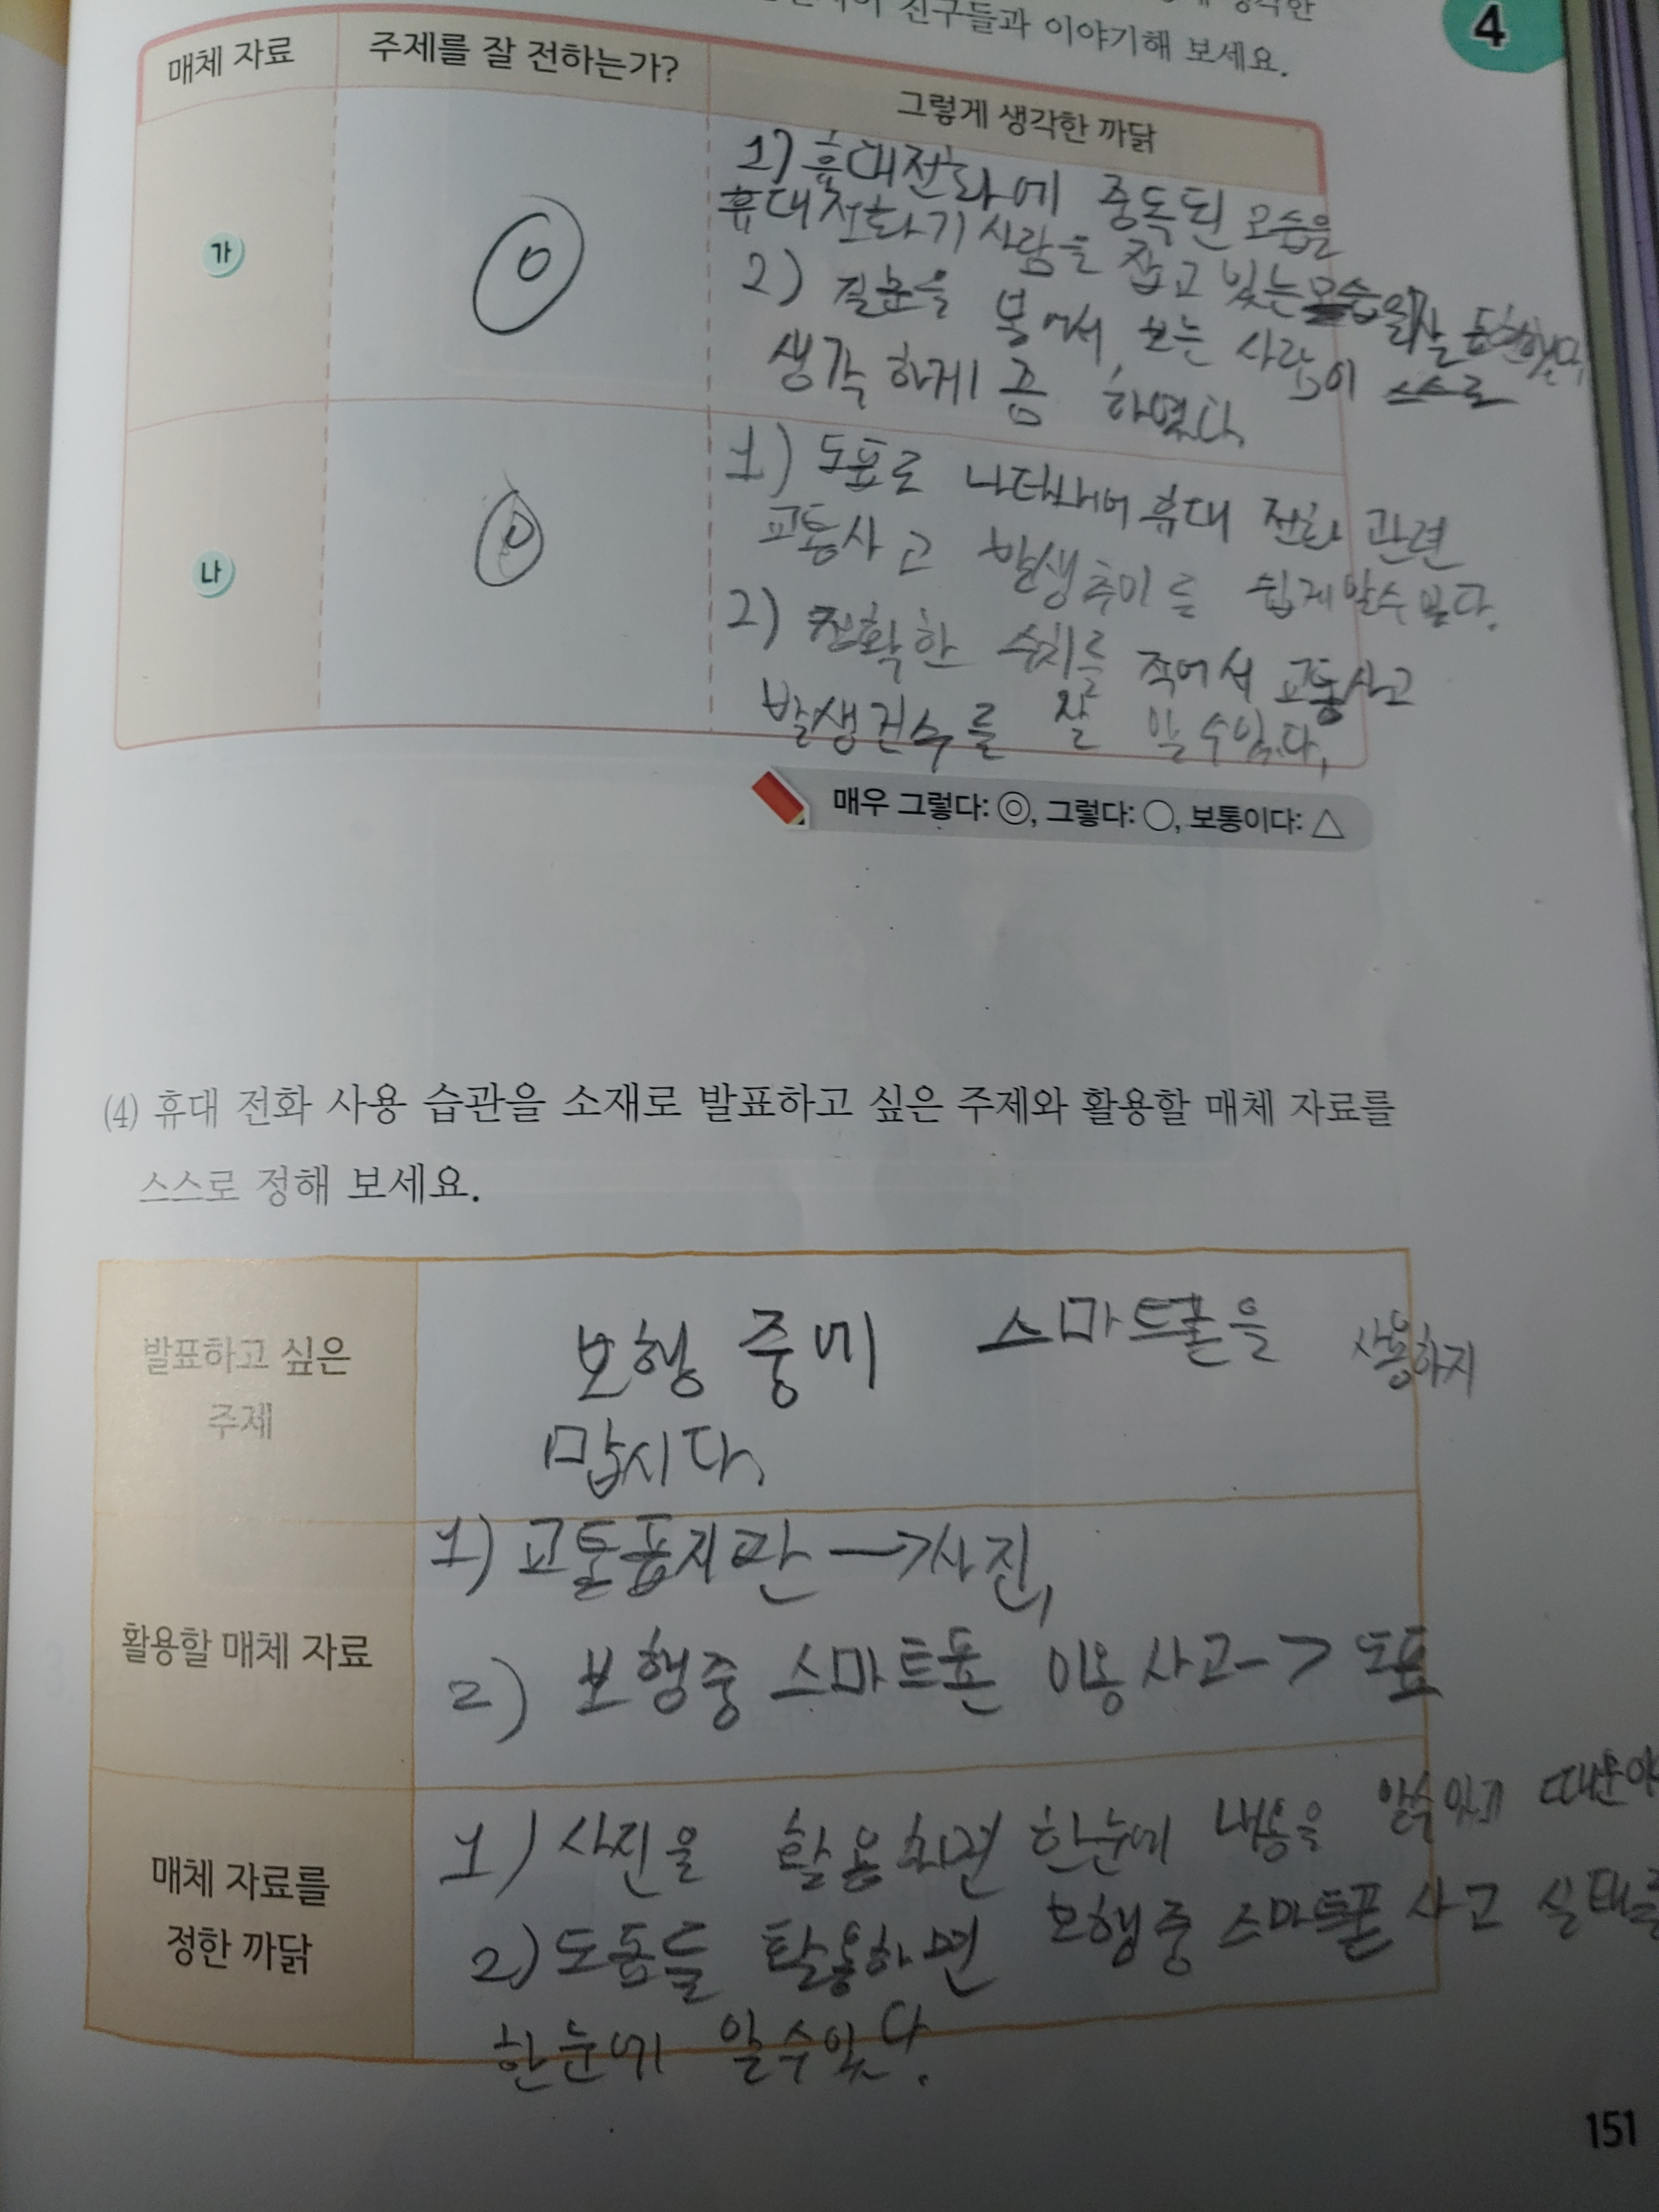 친구들과 이야기해 보세요.
4
매체 자료
주제를 잘 전하는가?
그렇게 생각한 까닭
가
◎
1) 휴대전화에 중독된 모습을
휴대전화기 사람을 잡고 있는 모습으로 잘 표현했다.
2) 질문을 붙여서, 보는 사람이 스스로
생각하게 좀 하였다.
나
◎
1) 도표로 나타내어 휴대 전화 관련
교통사고 발생추이를 쉽게알수있다.
2) 정확한 수치를 적어서 교통사고
발생건수를 잘 알수있다.
매우 그렇다: ◎, 그렇다: ○, 보통이다: △
(4) 휴대 전화 사용 습관을 소재로 발표하고 싶은 주제와 활용할 매체 자료를
스스로 정해 보세요.
발표하고 싶은
주제
보행 중에 스마트폰을 사용하지
맙시다.
활용할 매체 자료
1) 교통표지판 → 사진,
2) 보행중 스마트폰 이용 사고 -> 도표
매체 자료를
정한 까닭
1) 사진을 활용하면 한눈에 내용을 알수있기 때문이
2) 도표를 활용하면 보행중 스마트폰 사고 실태를
한눈에 알수있다.
151